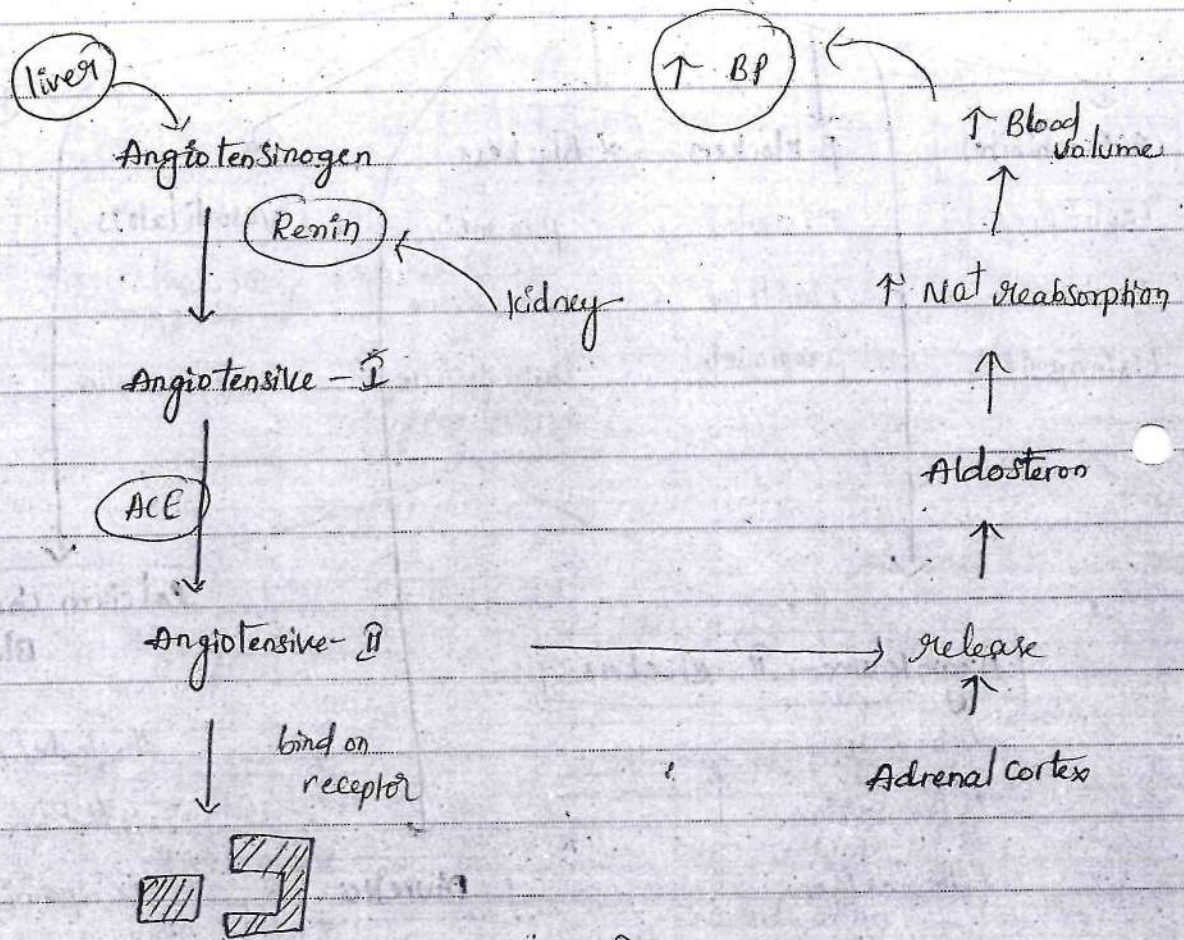 liver
Angiotensinogen
Renin
kidney
Angiotensive - I
ACE
Angiotensive - II
bind on
receptor
↑ BP
↑ Blood
volume
↑ Na+ reabsorption
Aldosteron
release
Adrenal Cortex